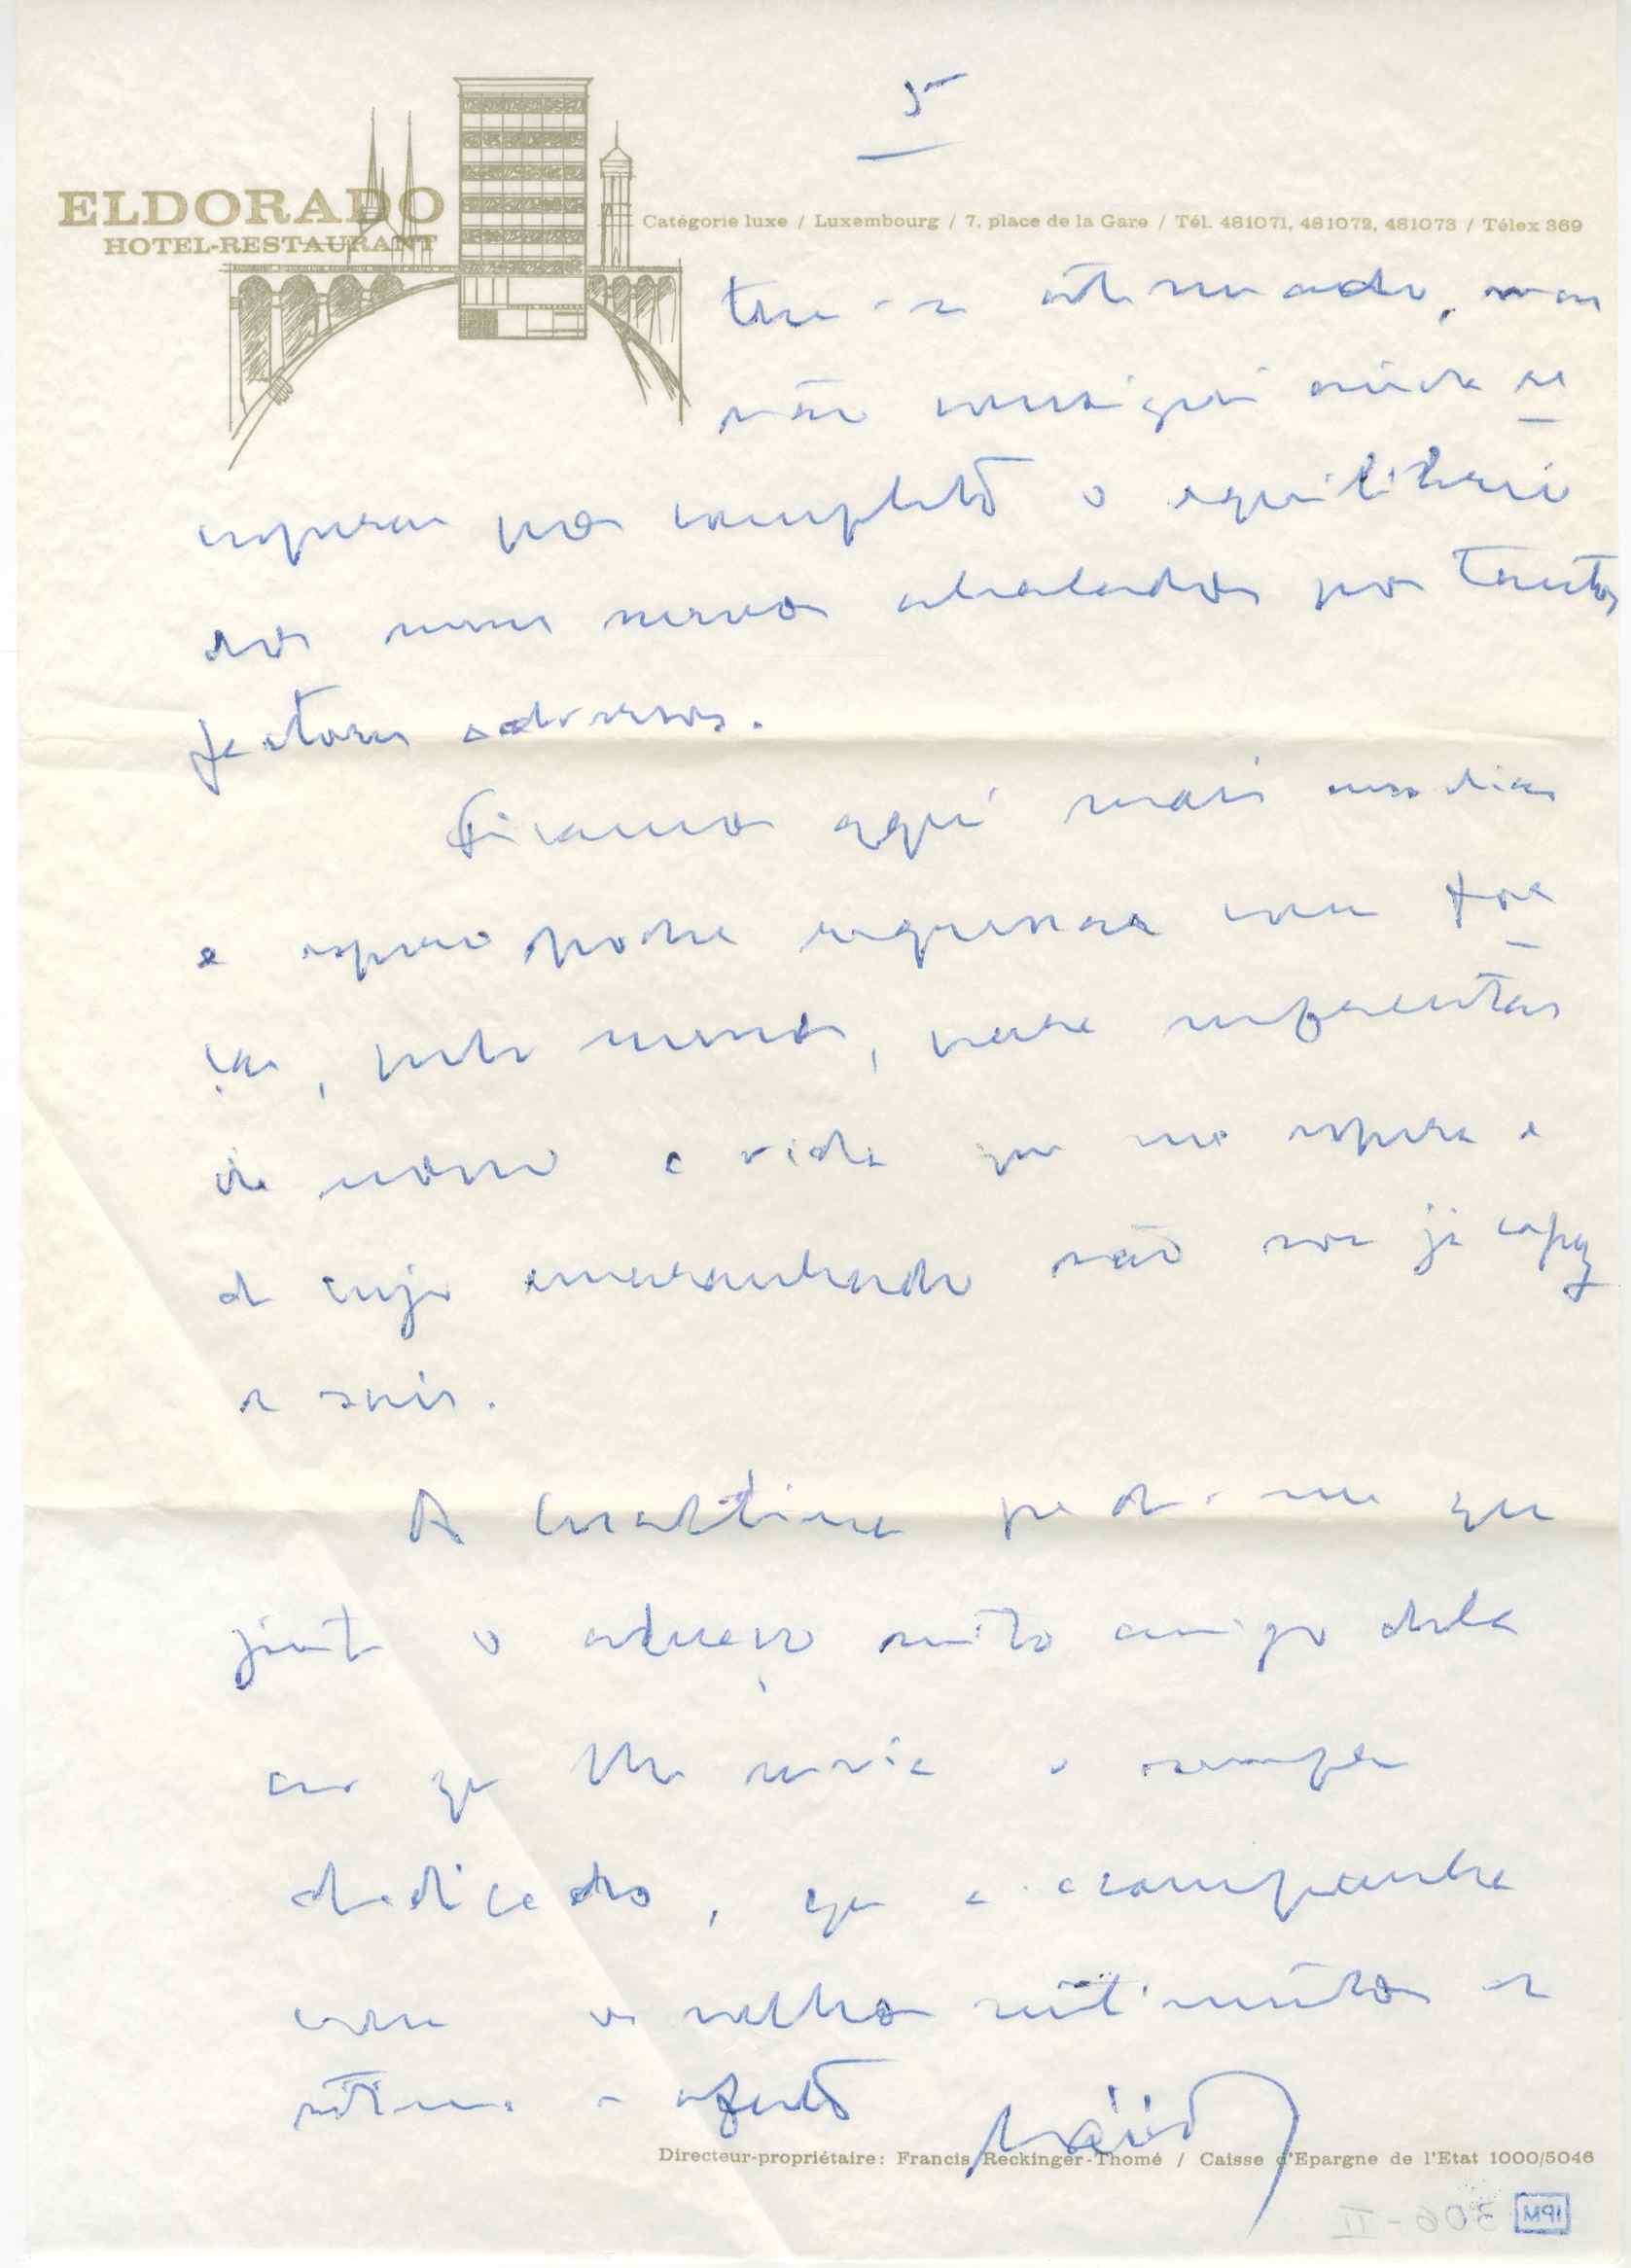 5
ELDORADO
HOTEL-RESTAURANT
Catégorie luxe / Luxembourg / 7, place de la Gare / Tél. 481071, 481072, 481073 / Télex 369
-se atenuado, mas
não consegui ainda re
cuperar por completo o equilíbrio
dos meus nervos abalados por tantos
factores adversos.
Ficamos aqui mais uns dias
e espero poder regressar com for
ças, pelo menos, para enfrentar
de novo a vida que me espera e
de cujo emaranhado não sou já capaz
de sair.
A pede-me que
junte o abraço muito amigo dela
ao que lhe envia o sempre
dedicado, que a acompanha
com os melhores sentimentos de
estima e afecto
Directeur-propriétaire: Francis Reckinger-Thomé / Caisse d'Epargne de l'Etat 1000/5046
306-II
IPM